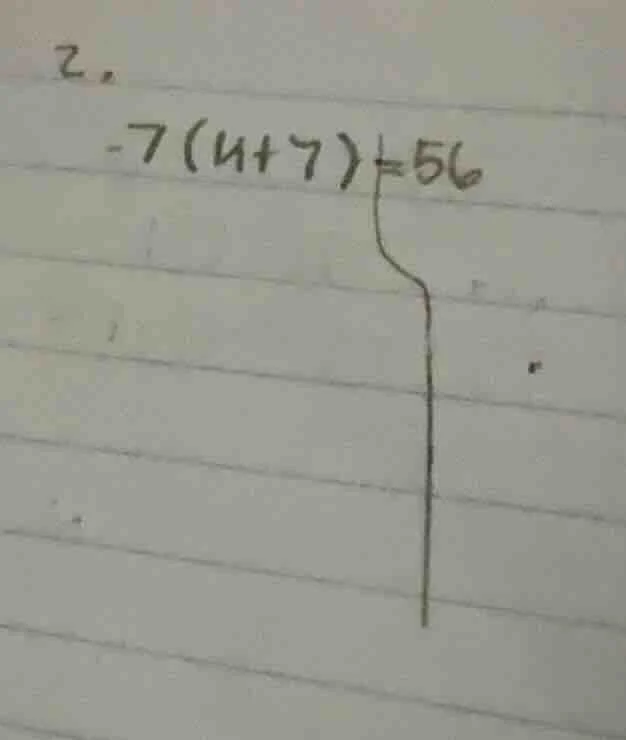 2.
-7(n+7)=56